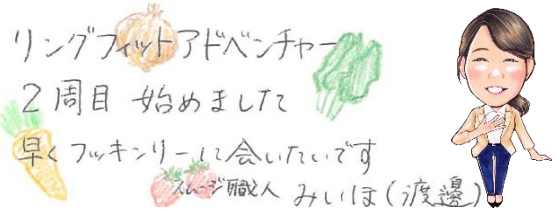 リングフィットアドベンチャー
2周目 始めました
早くフッキンリーに会いたいです
スムージー職人 みいほ(渡邊)